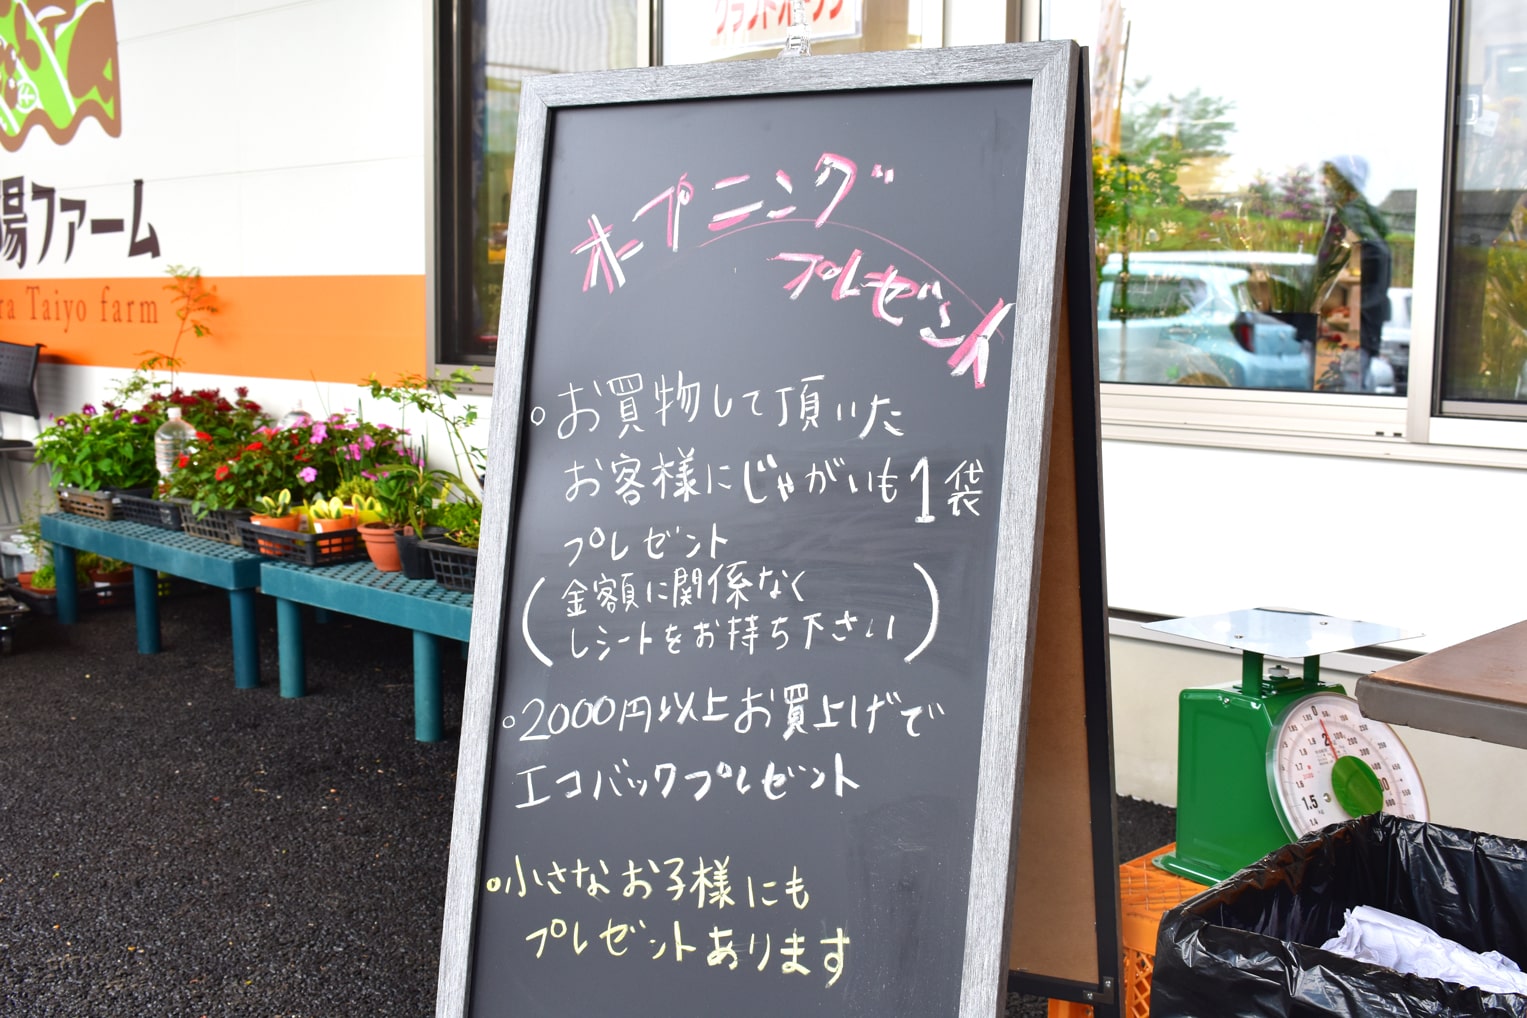 グランドオープン
陽ファーム
ra Taiyo farm
オープニング
プレゼント
○お買物して頂いた
お客様にじゃがいも1袋
プレゼント
(金額に関係なく
レシートをお持ち下さい)
○2000円以上お買上げで
エコバックプレゼント
○小さなお子様にも
プレゼントあります